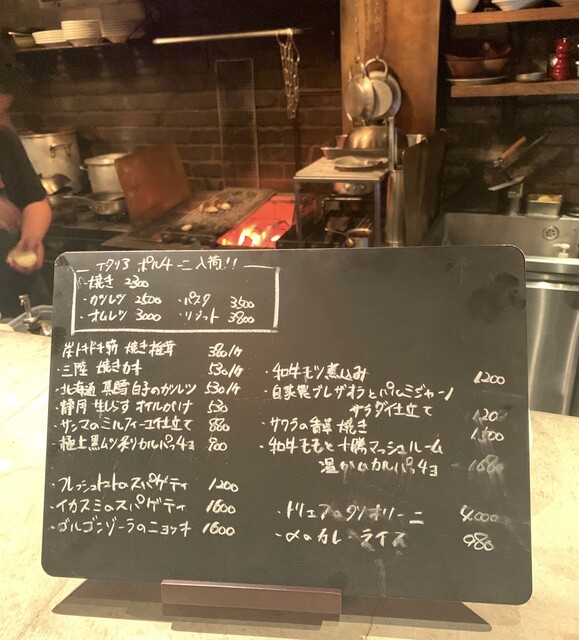 イタリア ポルチーニ入荷!!
・焼き 2300
・カツレツ 2500 ・パスタ 3500
・オムレツ 3000 ・リゾット 3800
焼き椎茸 380/ヶ
・三陸 焼きカキ 530/ヶ
・北海道 真鱈白子のカツレツ 530/ヶ
・静岡 生しらすオイルがけ 530
・サンマのミルフィーユ仕立て 880
・極上黒ムツ炙りカルパッチョ 900
・フレッシュトマトのスパゲティ 1200
・イカスミのスパゲティ 1600
・ゴルゴンゾーラのニョッキ 1600
・和牛モツ煮込み 1200
・自家製ブレザオラとパルミジャーノ
サラダ仕立て 1200
・サワラの香草焼き 1500
・和牛モモと十勝マッシュルーム
温かいカルパッチョ 1680
・トリュフのタリオリーニ 4000
・〆のカレーライス 980